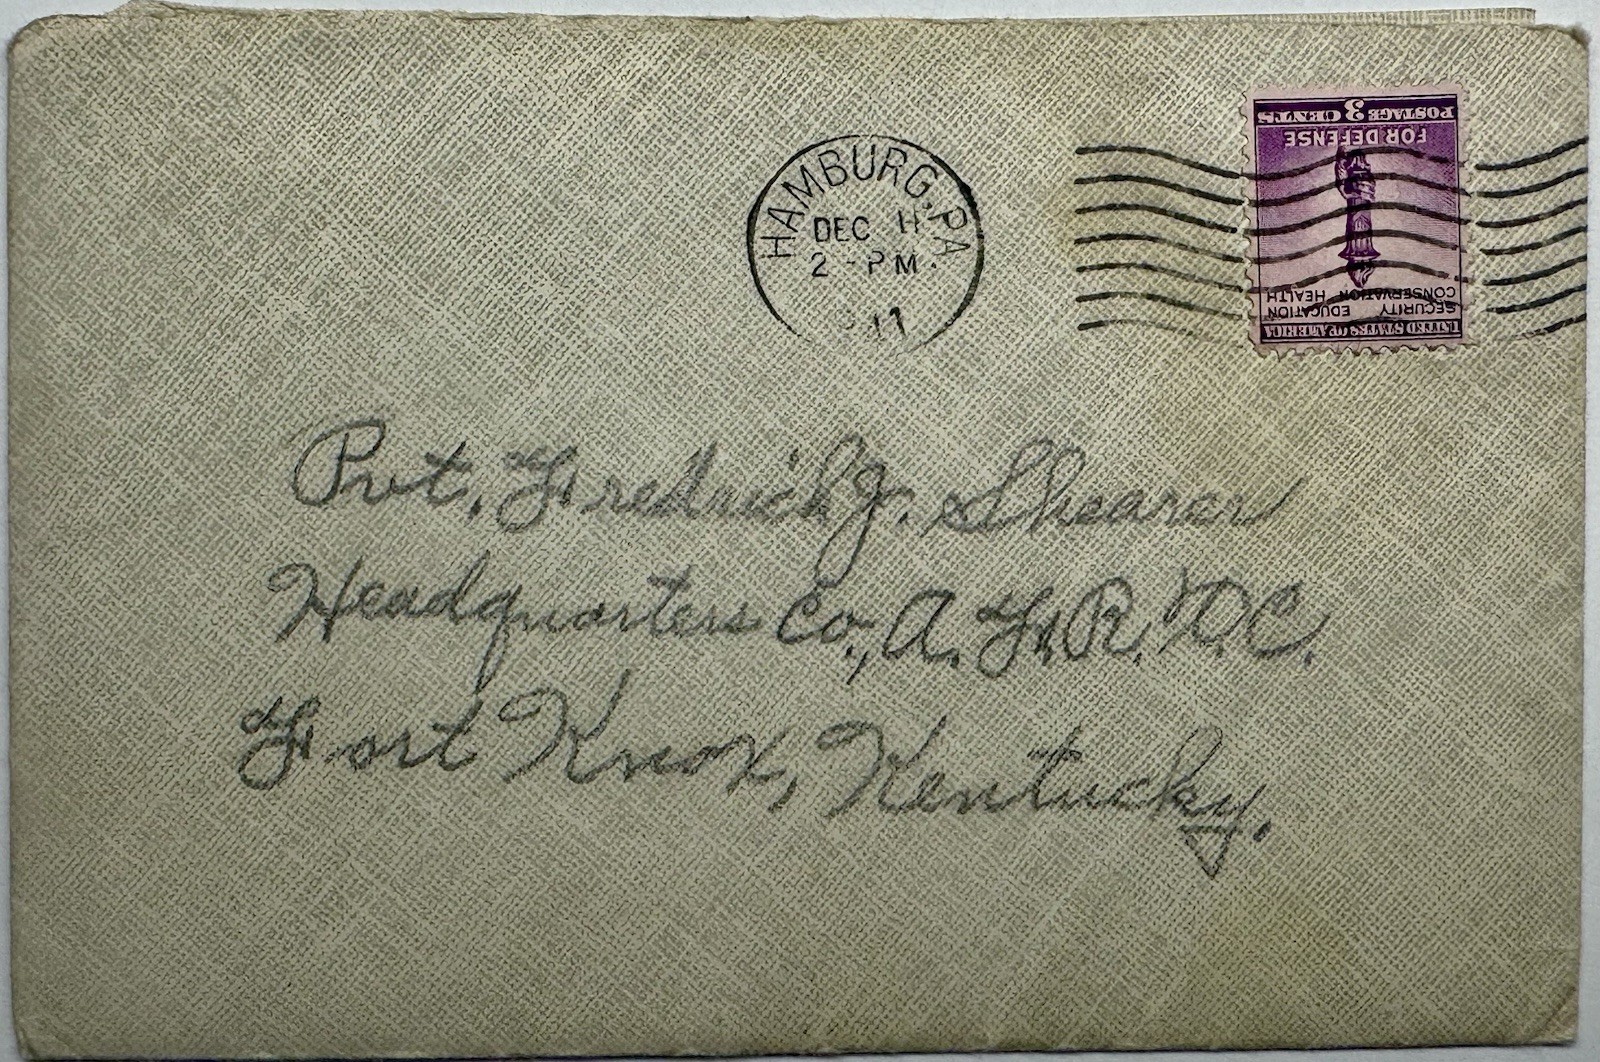 HAMBURG, PA
DEC 11
2 - PM.
POSTAGE 3 CENTS
FOR DEFENSE
SECURITY EDUCATION
CONSERVATION HEALTH
UNITED STATES OF AMERICA
Pvt. Fredrick J. Shearer
Headquarters Co., A. F. R. T. C.
Fort Knox, Kentucky.